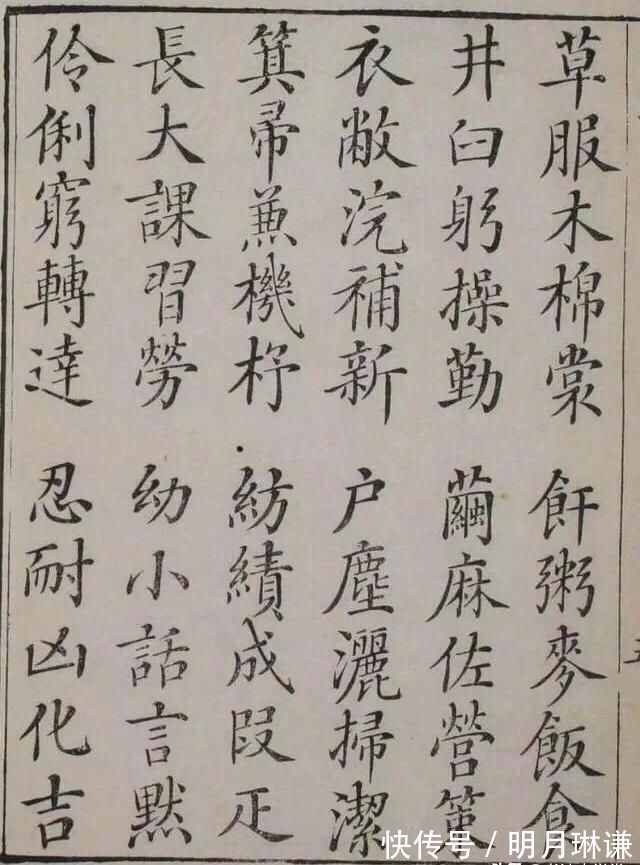 草服木棉裳 飦粥麥飯食
井臼躬操勤 繭麻佐營
衣敝浣補新 户塵灑掃潔
箕帚兼機杼 紡績成段疋
長大課習勞 幼小話言黙
伶俐窮轉達 忍耐凶化吉
快传号/明月琳谦